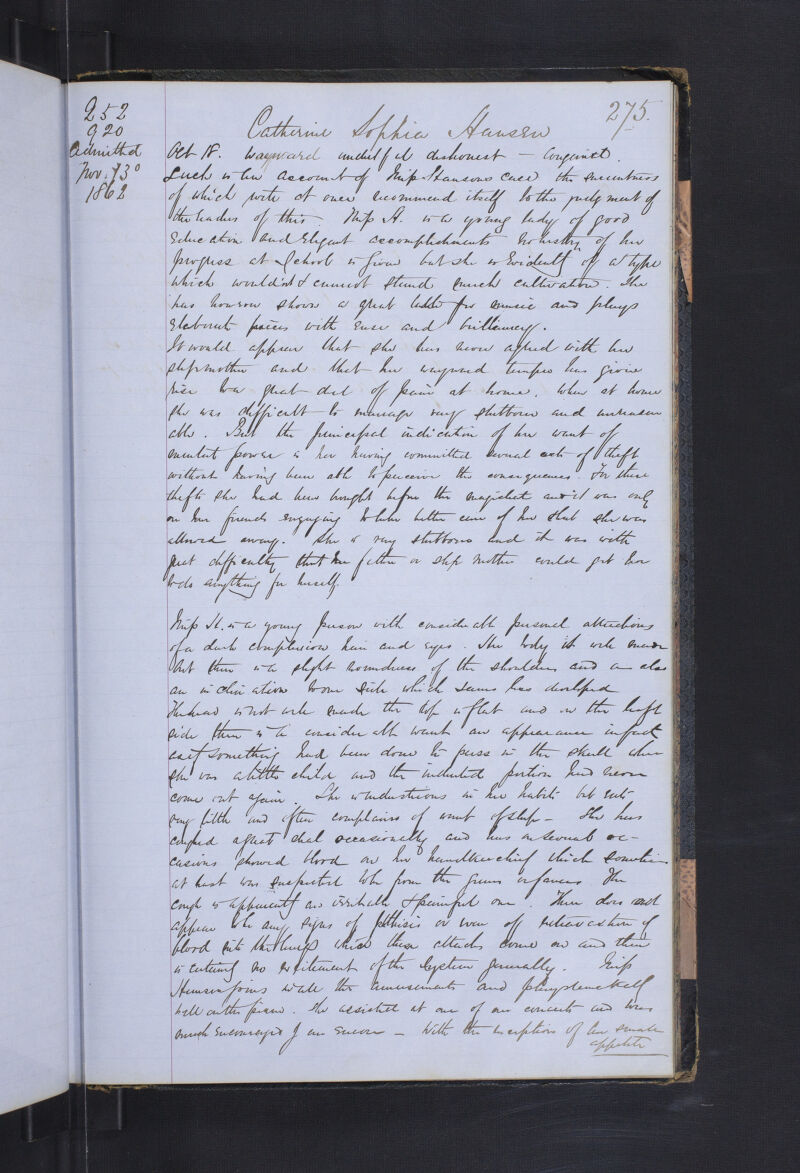 252
920
Admitted
Nov. 13°
1862
275.
Catherine Sophia Hansen
Oct 18. Wayward undutiful dishonest — Congenital.
Such is the account of Miss Hansens case the succintness
of which will at once recommend itself to the judgment of
the reader of this. Miss H. is a young lady of good
Education and Elegant accomplishments no history of her
progress at School is given but she is Evidently of a type
which wouldn't & cannot stand much cultivation. She
has however shown a great taste for music and plays
elaborate pieces with ease and brilliancy.
It would appear that she has never agreed with her
stepmother and that her wayward temper has given
rise to a great deal of pain at home. When at home
she was difficult to manage very stubborn and unreason
able. But the principal indication of her want of
mental power is her having committed several acts of theft
without having been able to perceive the consequences. For these
thefts she had been brought before the magistrate and it was only
on her friends engaging to take better care of her that she was
allowed away. She is very stubborn and it was with
great difficulty that her father or step mother could get her
to do anything for herself.
Miss H. is a young person with considerable personal attractions
of a dark complexion hair and eyes. The body is well made
but there is a slight roundness of the shoulders and also
an inclination to one side which seems has developed
The head is not well made the top is flat and on the left
side there is a considerable want an appearance in fact
as if something had been done to press in the skull when
she was a little child and the indented portion had never
come out again. She is industrious in her habits but eats
very little and often complains of want of sleep — She has
coughed a great deal occasionally and has on several oc-
casions showed blood on her handkerchief which sometimes
at least was suspected to be from the gums or fauces. The
cough is apparently an irritable & painful one. There does not
appear to be any signs of phthisis or even of extravasation of
blood into the lungs when these attacks come on and there
is certainly no excitement of the system generally. Miss
Hansen joins in all the amusements and plays
well on the piano. She assisted at one of our concerts and was
much encouraged by an encore — With the exception of her small
appetite